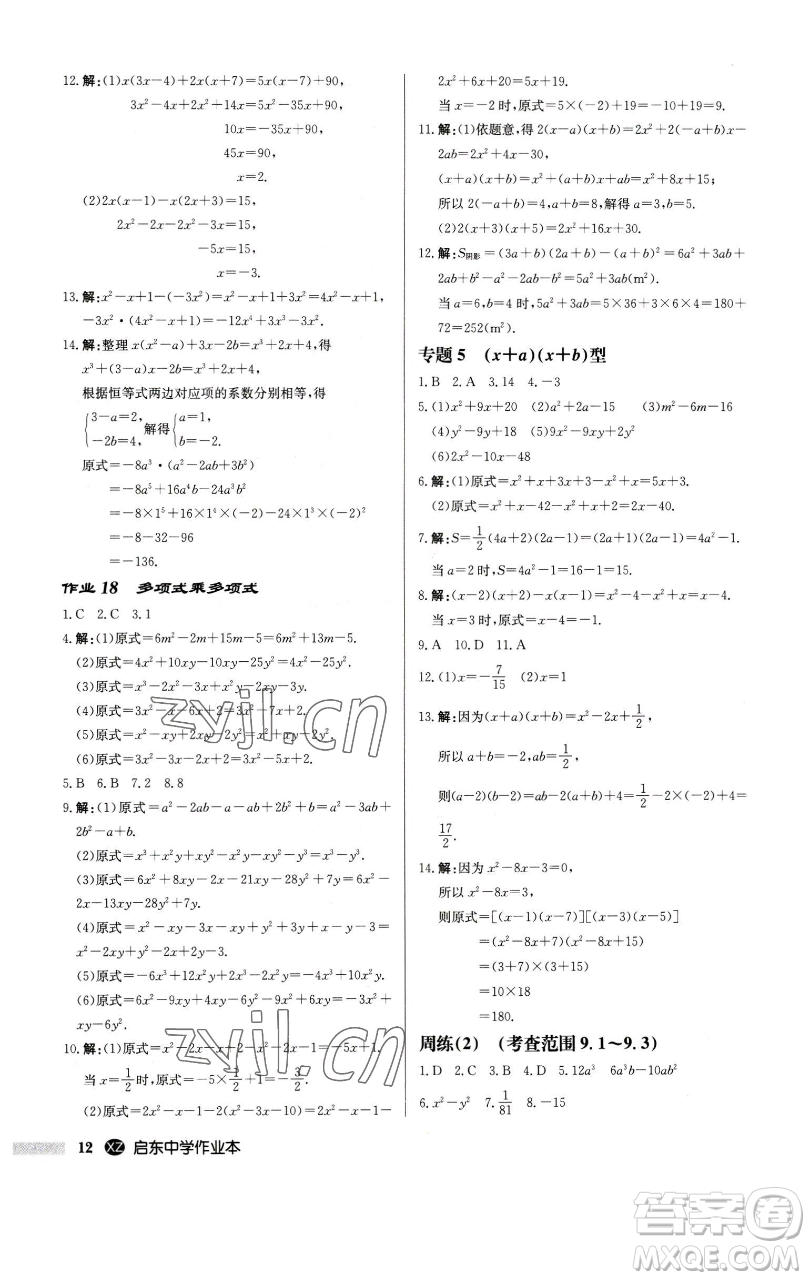 12.解:(1)x(3x-4)+2x(x+7)=5x(x-7)+90,
3x²-4x+2x²+14x=5x²-35x+90,
10x=-35x+90,
45x=90,
x=2.
(2)2x(x-1)-x(2x+3)=15,
2x²-2x-2x²-3x=15,
-5x=15,
x=-3.
13.解:x²-x+1-(-3x²)=x²-x+1+3x²=4x²-x+1,
-3x²·(4x²-x+1)=-12x⁴+3x³-3x².
14.解:整理 x(x²-a)+3x-2b=x³+5x+4 得
x³+(3-a)x-2b=x³+5x+4,
根据恒等式两边对应项的系数分别相等,得
{3-a=2, -2b=4, 解得{a=1, b=-2.
原式=-8a³·(a²-2ab+3b²)
=-8a⁵+16a⁴b-24a³b²
=-8×1⁵+16×1⁴×(-2)-24×1³×(-2)²
=-8-32-96
=-136.
作业 18 多项式乘多项式
1.C 2.C 3.1
4.解:(1)原式=6m²-2m+15m-5=6m²+13m-5.
(2)原式=4x²+10xy-10xy-25y²=4x²-25y².
(3)原式=x²-2x-2xy-3y.
(4)原式=3x²-x-6x+2=3x²-7x+2.
(5)原式=
(6)原式=3x²-2x-3x+2=3x²-5x+2.
5.B 6.B 7.2 8.8
9.解:(1)原式=a²-2ab-a-ab+2b²+b=a²-3ab+
2b²-a+b.
(2)原式=x³+x²y+xy²-x²y-xy²-y³=x³-y³.
(3)原式=6x²+8xy-2x-21xy-28y²+7y=6x²-
2x-13xy-28y²+7y.
(4)原式=x²-xy-3x+xy-y²+3y+3x-3y=
x²-y².
(5)原式=-6x²+3xy+2xy-y²=-6x²+5xy-y².
(6)原式=x²-xy+2xy-2y²-4y²=x²+
xy-6y².
10.解:(1)原式=x²-2x-x+2-x²-2x-1=-5x+1.
当 x=1/2时,原式=-5×1/2+1=-3/2.
(2)原式=3x²+6x-x-2-2x²+10x-x²-
2x²+6x+20=15x+19.
当 x=-2 时,原式=5×(-2)+19=-10+19=9.
11.解:(1)依题意,得 2(x-a)(x+b)=2x²+2(-a+b)x-
2ab=2x²+4x-30,
(x+a)(x+b)=x²+(a+b)x+ab=x²+8x+15;
所以 2(-a+b)=4,a+b=8,解得 a=3,b=5.
(2)2(x+3)(x+5)=2x²+16x+30.
12.解:S阴影=(3a+b)(2a+b)-(a+b)²=6a²+3ab+
2ab+b²-a²-2ab-b²=5a²+3ab(m²).
当 a=6,b=4 时,5a²+3ab=5×36+3×6×4=180+
72=252(m²).
专题 5 (x+a)(x+b)型
1.B 2.A 3.14 4.-3
5.(1)x²+9x+20 (2)a²+2a-15 (3)m²-6m-16
(4)y²-9y+18 (5)y²-9y-90
(6)2x²-10x-48
6.解:(1)原式=x²+x+3x+3-x²+x=5x+3.
(2)原式=x²+x-42-x²-x+2=-40.
7.解:S=1/2(4a+2)(2a-1)=(2a+1)(2a-1)=4a²-1.
当 a=2 时,S=4a²-1=16-1=15.
8.解:(x-2)(x+2)-x(x-1)=x²-4-x²+x=x-4.
当 x=3 时,原式=x-4=-1.
9.A 10.D 11.A
12.(1)x=-7/15 (2)x=1
13.解:因为(x+a)(x+b)=x²-2x+1/2,
所以 a+b=-2,ab=1/2,
则(a-2)(b-2)=ab-2(a+b)+4=1/2-2×(-2)+4=
17/2.
14.解:因为 x²-8x-3=0,
所以 x²-8x=3,
则原式=[(x-1)(x-7)][(x-3)(x-5)]
=(x²-8x+7)(x²-8x+15)
=(3+7)×(3+15)
=10×18
=180.
周练(2) (考查范围 9.1~9.3)
1.D 2.D 3.C 4.A 5.12a³ 6a³b-10ab²
6.x²-y² 7.1/81 8.-15
12 XZ 启东中学作业本
zyjl.cn
zyjl.cn
答案圈
MXQE.COM